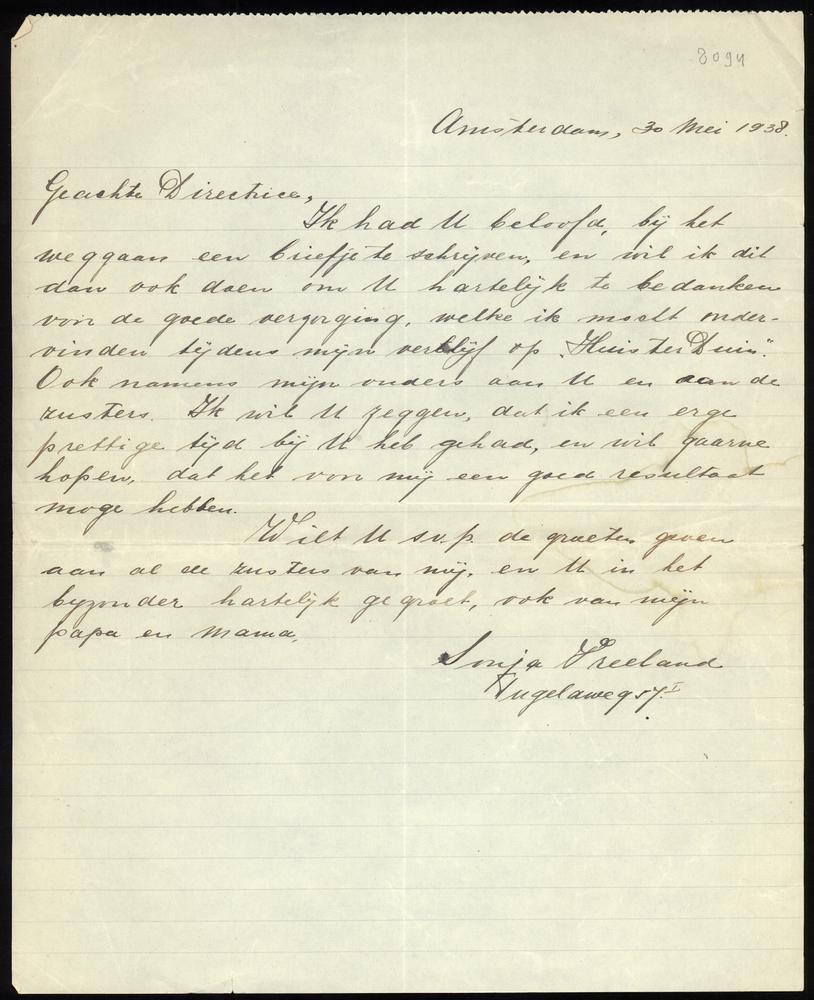 8094
Amsterdam, 30 Mei 1938.
Geachte Directrice,
Ik had U beloofd, bij het
weggaan een briefje te schrijven, en wil ik dit
dan ook doen om U hartelijk te bedanken
voor de goede verzorging, welke ik mocht onder-
vinden tijdens mijn verblijf op "Huis ter Duin".
Ook namens mijn ouders aan U en aan de
zusters. Ik wil U zeggen, dat ik een erge
prettige tijd bij U heb gehad, en wil gaarne
hopen, dat het voor mij een goed resultaat
moge hebben.
Wilt U s.v.p. de groeten geven
aan al de zusters van mij, en U in het
byzonder hartelijk gegroet, ook van mijn
papa en mama,
Sonja Vreeland
57 I